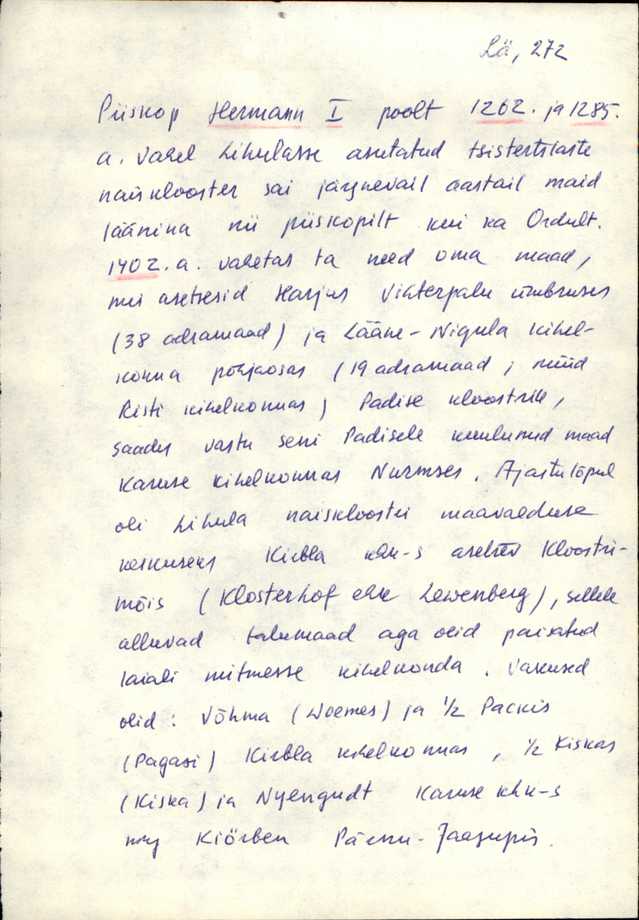 Lä, 272
Piiskop Hermann I poolt 1262. ja 1285.
a. vahel Lihulasse asutatud tsistertslaste
naisklooster sai järgnevail aastail maid
läänina nii piiskopilt kui ka Ordult.
1402. a. vahetas ta need oma maad,
mis asetsesid Harjus Vihterpalu ümbruses
(38 adramaad) ja Lääne-Nigula kihel-
konna põhjaosas (19 adramaad; nüüd
Risti kihelkonnas) Padise kloostrile,
saades vastu seni Padisele kuulunud maad
Karuse kihelkonnas Nurmses. Ajastu lõpul
oli Lihula naiskloostri maavalduse
keskuseks Kirbla khk-s asetsev Kloostri-
mõis (Klosterhof ehk Lewenberg), sellele
alluvad talumaad aga olid paisatud
laiali mitmesse kihelkonda. Vakused
olid: Võhma (Woemes) ja 1/2 Packis
(Pagasi) Kirbla kihelkonnas, 1/2 Kiskas
(Kiska) ja Nyengudt Karuse khk-s
ning Kiörben Pärnu-Jaagupis.